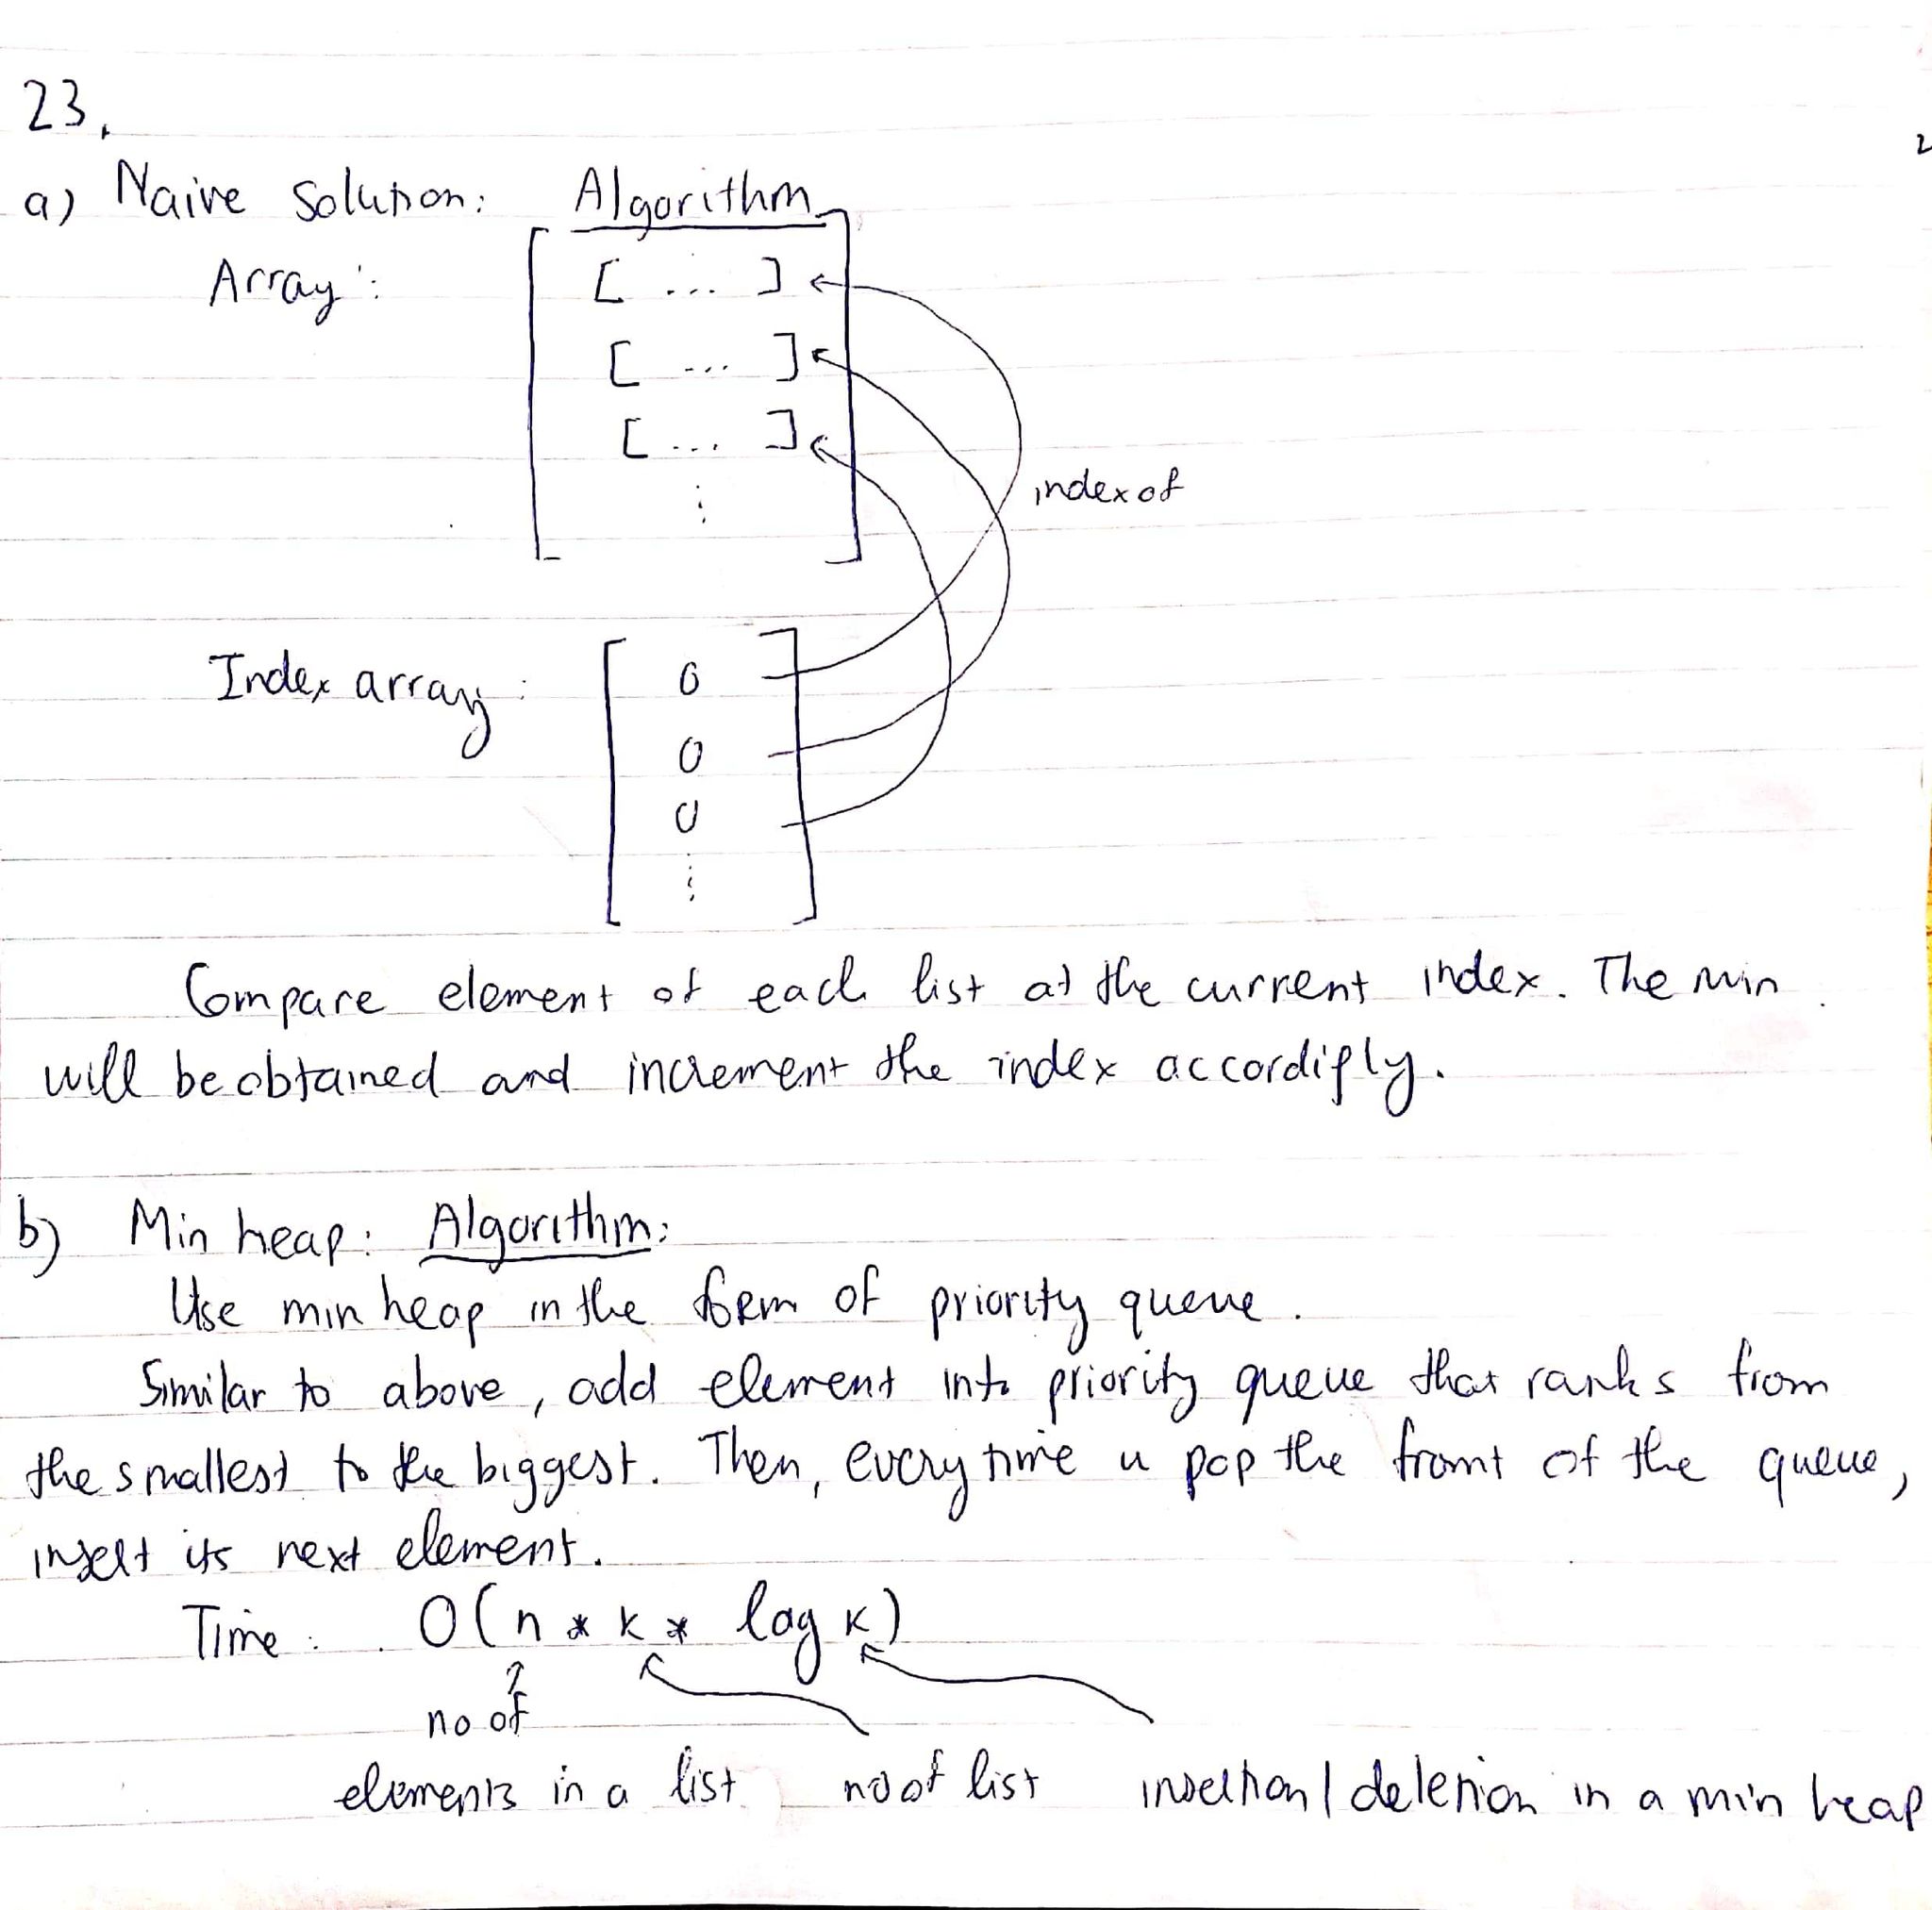 23.
a) Naive solution: Algorithm
Array :
[ ... ]
[ ... ]
[ ... ]
⋮
index of
Index array :
0
0
0
⋮
Compare element of each list at the current index. The min
will be obtained and increment the index accordigly.
b) Min heap: Algorithm:
Use min heap in the form of priority queue.
Similar to above, add element into priority queue that ranks from
the smallest to the biggest. Then, every time u pop the front of the queue,
insert its next element.
Time : O(n * k * log k)
no of
elements in a list no of list insertion / deletion in a min heap